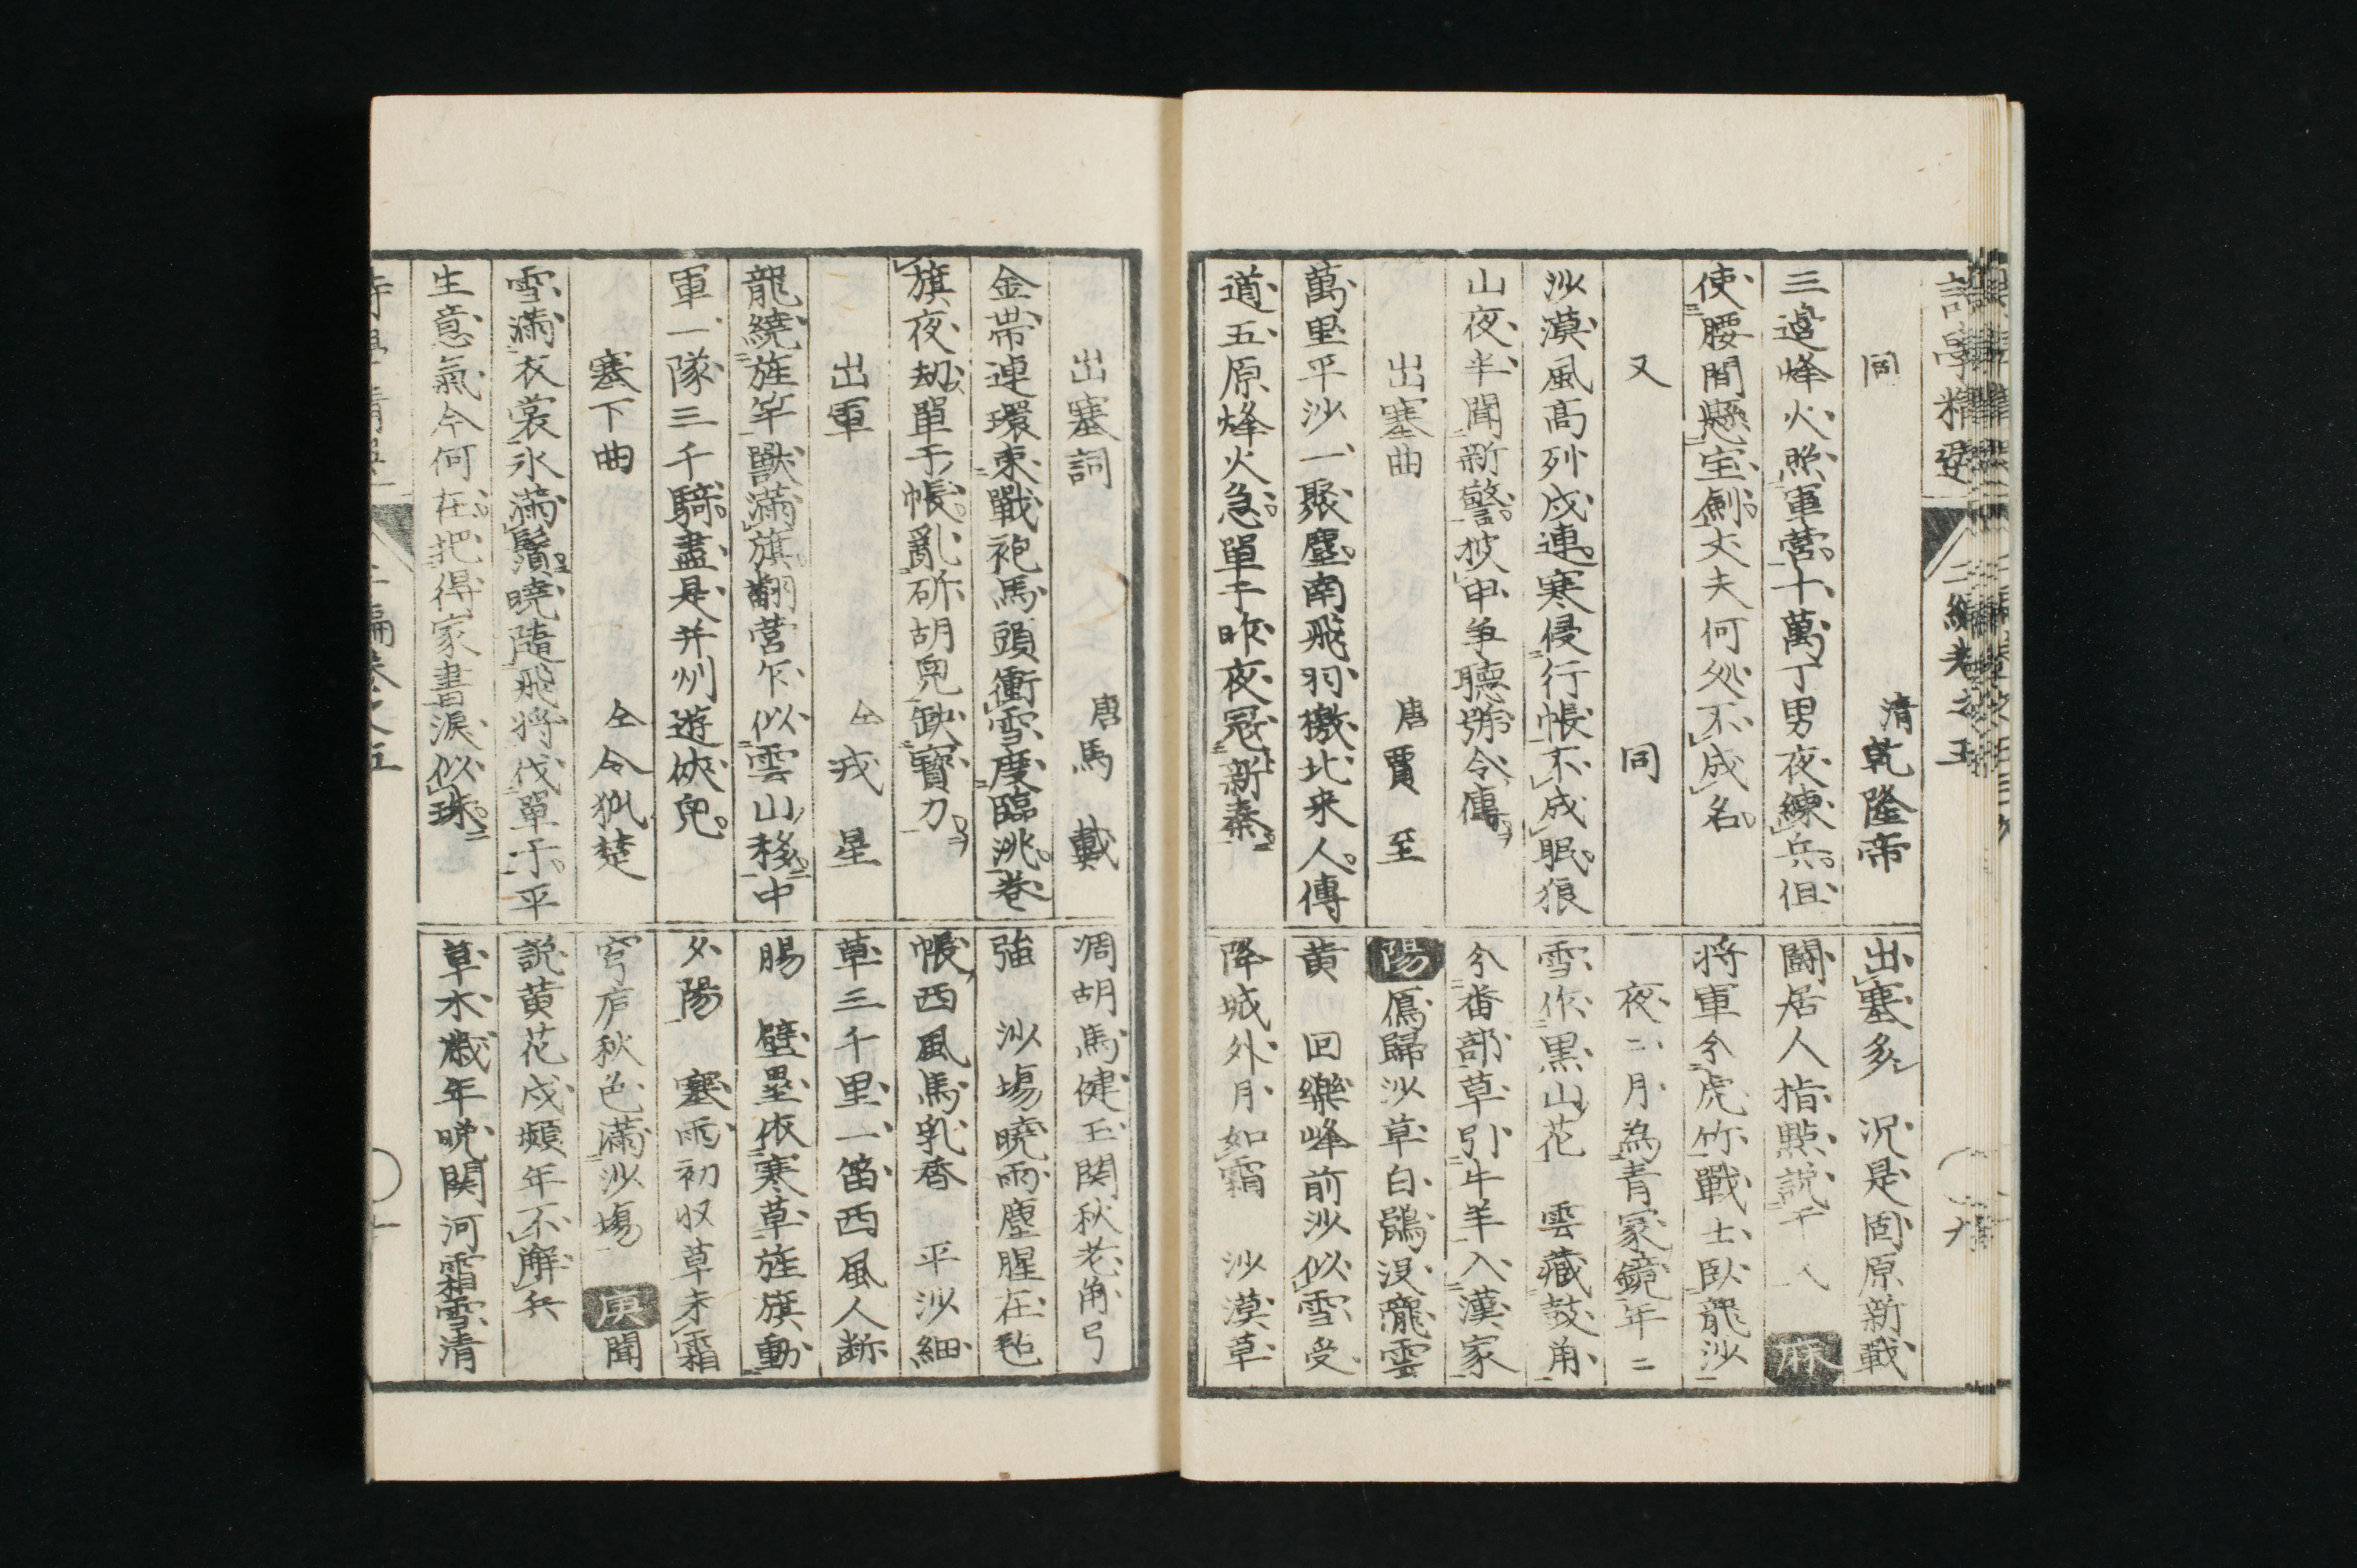 詩學精選 二編卷之五
同 清 乾隆帝
三邉烽火照軍营十萬丁男夜練兵但
使腰間懸宝劍丈夫何処不成名
又 同
沙漠風高列戍連寒侵行帳不成眠狼
山夜半聞新警披甲争聽號令傳
出塞曲 唐 賈至
萬里平沙一聚塵南飛羽檄北来人傳
道五原烽火急單于昨夜冦新秦
出塞多 况是固原新戰
闘居人指點説 麻
将軍分虎竹戰士臥龍沙
夜二月為青冢鏡年二
雪作黒山花 雲藏鼓角
分畨部草引牛羊入漢家
陽 鴈歸沙草白鶻没隴雲
黄 回樂峰前沙似雪受
降城外月如霜 沙漠草
出塞詞 唐 馬戴
金帯連環束戰袍馬頭衝雪度臨洮巻
旗夜劫單于帳亂斫胡兒缺寶刀
出軍 仝 戎星
龍繞旌竿獸満旗翻营乍似雲山移中
軍一隊三千騎盡是并州遊侠兒
塞下曲 仝 令狐楚
雪満衣裳氷満鬢曉隨飛将伐單于平
生意氣今何在把得家書涙似珠
凋胡馬健玉関秋老角弓
強 沙塲曉雨塵腥在毡
帳西風馬乳香 平沙細
草三千里一笛西風人断
腸 壁壘依寒草旌旗動
夕陽 塞雨初収草未霜
穹庐秋色満沙塲 庚 聞
説黄花戍頻年不解兵
草木歳年晩関河霜雪清